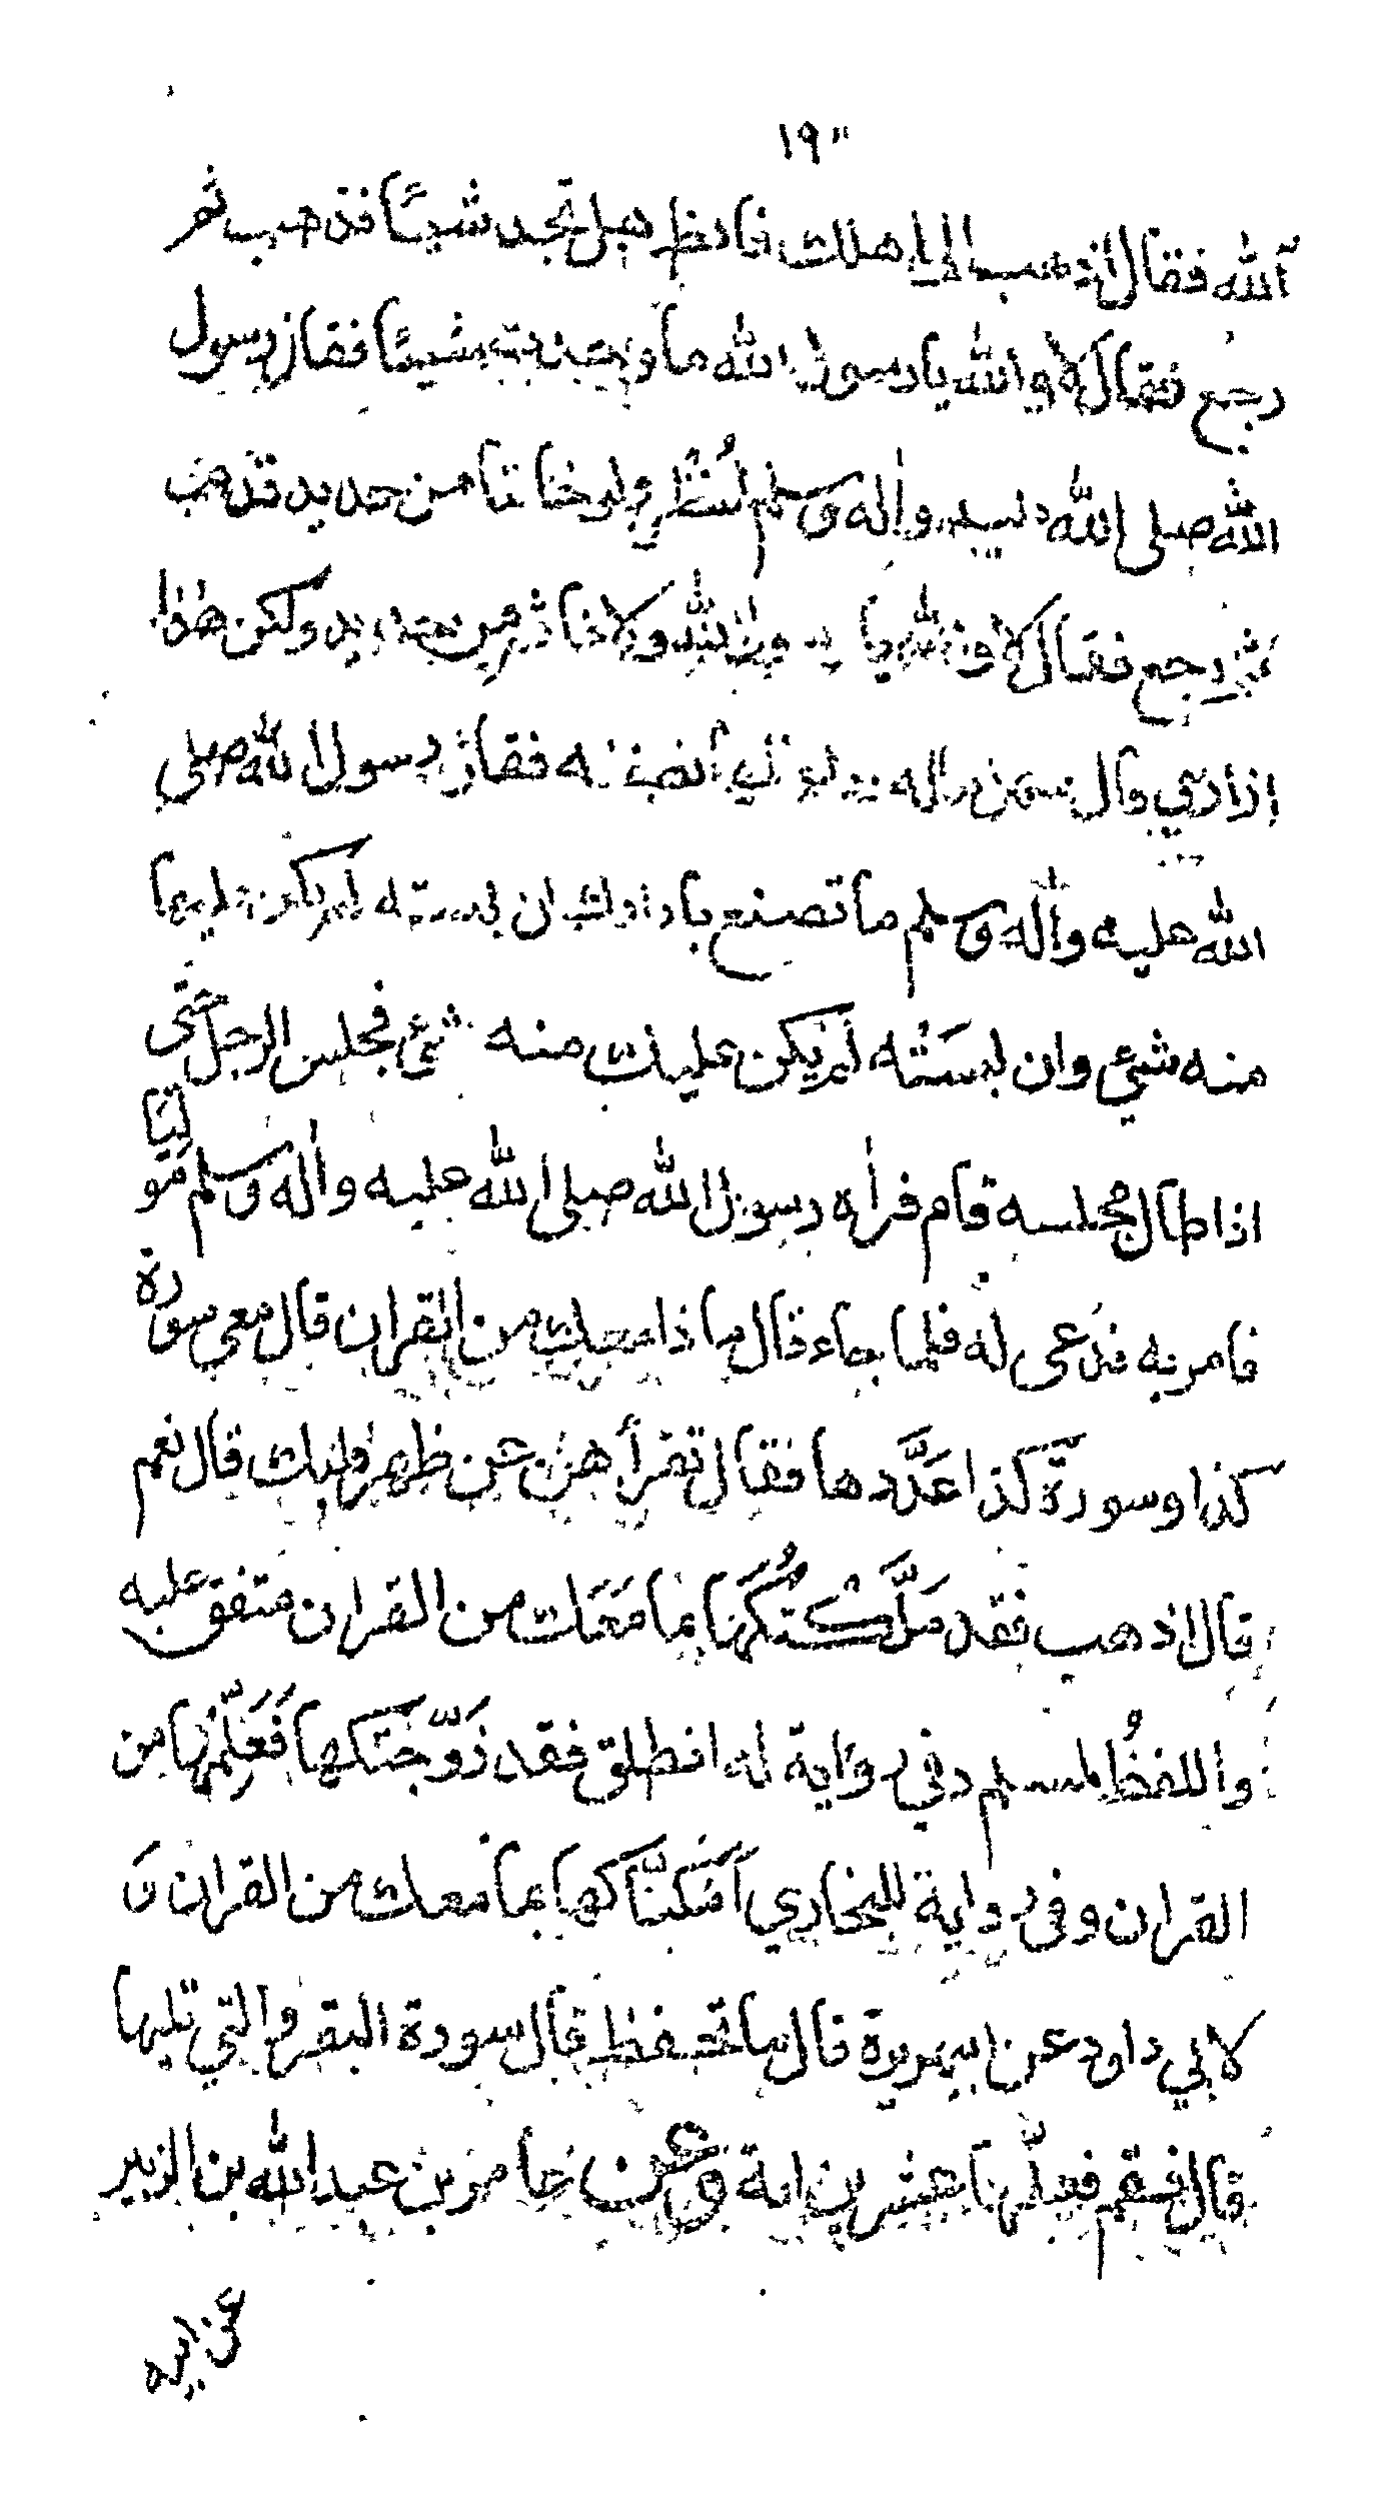 ١٩"
آلله فقال اذهب الى اهلك فانظر هل تجد شيئا فذهب ثم
رجع فقال لا والله يا رسول الله ما وجدت شيئا فقال رسول
الله صلى الله عليه واله وسلم انُظُر ولو خاتما من حديد فذهب
ثم رجع فقال لا والله يا رسول الله ولا خاتم من حديد ولكن هذا
ازاري قال سهل ماله رداء فلها نصفه فقال رسول الله صلى
الله عليه واله وسلم ما تصنع بازارك ان لبسته لم يكن عليها
منه شيء وان لبسَتْه لم يكن عليك منه شيء فجلس الرجل حتى
اذا طال مجلسه قام فراٰه رسول الله صلى الله عليه واله وسلم موليًا
فامر به فدُعى له فلما جاء قال ما ذا معك من القران قال معي سورة
كذا وسورة كذا عَدَّدها فقال تقرأهن عن ظهر قلبك قال نعم
قال اذهب فقد مَلَّكْتُكَهَا بما مَعَك من القران متفق عليه
واللفظُ لمسلم وفي رواية له انطلق فقد زَوّجتَكها فَعَلِّمْها من
القران وفي رواية للبخاري اَمْكَنّاكها بما معك من القران وَ
لابي داود عن ابي هريرة قال ما تحفظ قال سورة البقرة والتي تليها
قال فقم فعلّمها عشرين اية وعن عامر بن عبد الله بن الزبير
عن ابيه